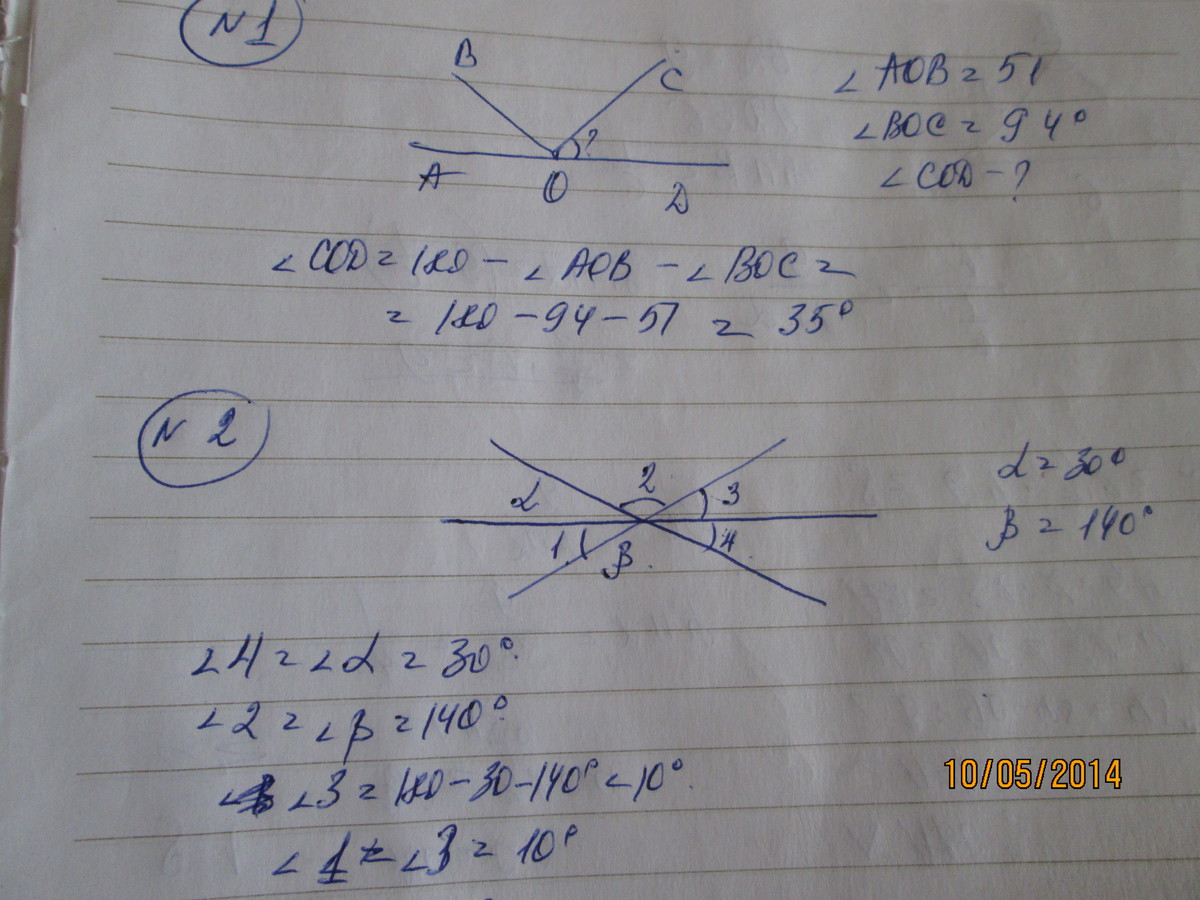 N 1
B
C
∠ AOB = 51
∠ BOC = 94°
∠ COD - ?
?
A
O
D
∠ COD = 180 - ∠ AOB - ∠ BOC =
= 180 - 94 - 51 = 35°
N 2
α = 30°
β = 140°
α
2
3
1
β
4
∠4 = ∠α = 30°.
∠2 = ∠β = 140°.
∠3 = 180 - 30 - 140° = 10°.
∠1 = ∠3 = 10°
10/05/2014